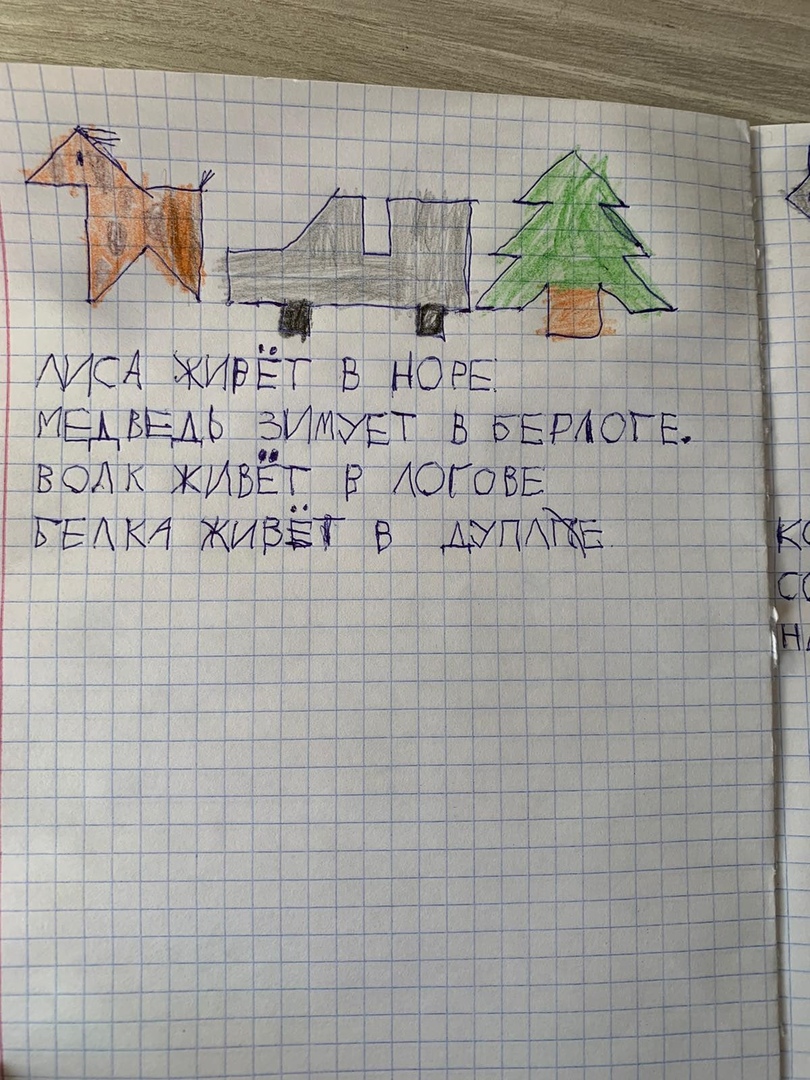 ЛИСА ЖИВЁТ В НОРЕ
МЕДВЕДЬ ЗИМУЕТ В БЕРЛОГЕ.
ВОЛК ЖИВЁТ В ЛОГОВЕ
БЕЛКА ЖИВЁТ В ДУПЛЕ